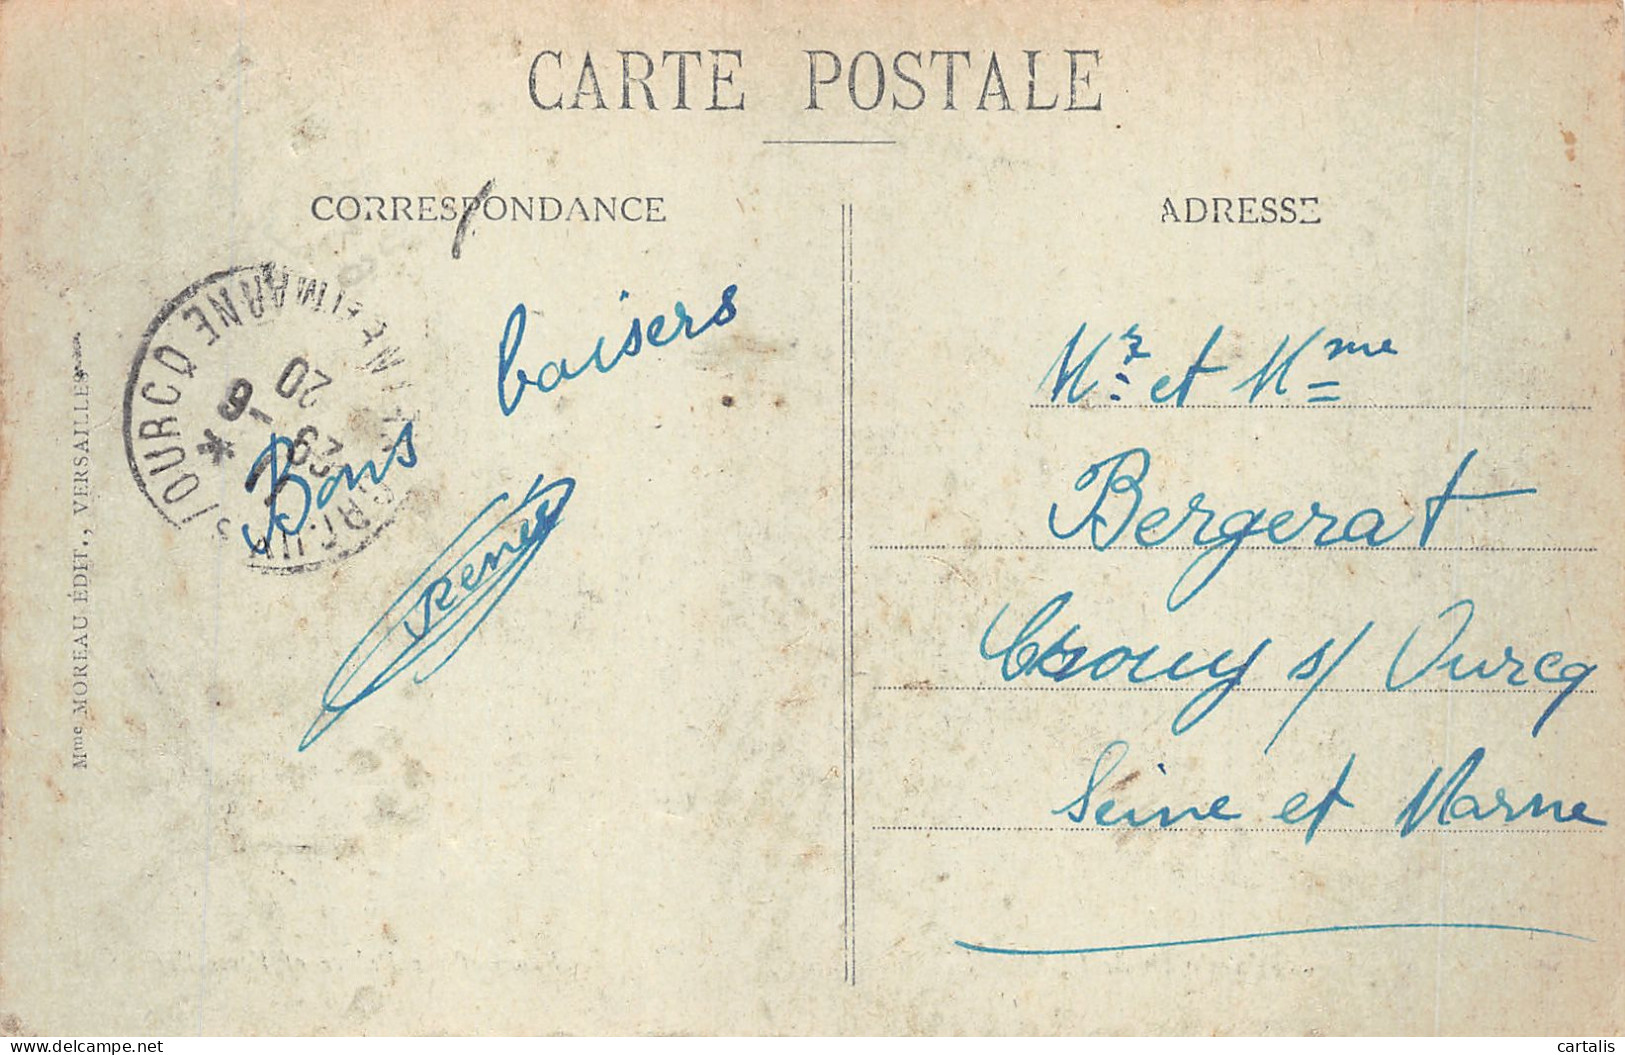 CARTE POSTALE
CORRESPONDANCE
ADRESSE
Bons baisers
René
Mr et Mme
Bergerat
Crouy s/ Ourcq
Seine et Marne
Mme MOREAU ÉDIT., VERSAILLES
OURCQ
MARNE
20
6
cartalis
delcampe.net